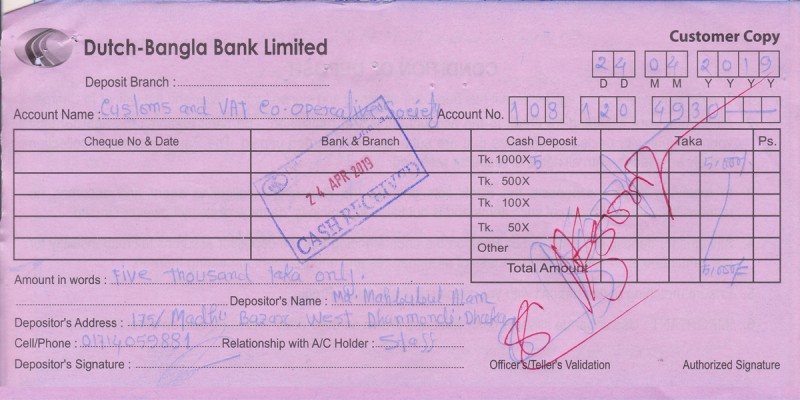 Customer Copy
Dutch-Bangla Bank Limited
24 04 2019
D D M M Y Y Y Y
Deposit Branch :
Account Name : Customs and VAT Co-operative Society Account No. 108 120 4930
Cheque No & Date Bank & Branch Cash Deposit Taka Ps.
Tk. 1000X 5 5,000/-
Tk. 500X
Tk. 100X
Tk. 50X
Other
Total Amount 5,000/-
24 APR 2019
CASH RECEIVED
Amount in words : Five thousand taka only.
Depositor's Name : Md. Mahbubul Alam
Depositor's Address : 175/ Madhu Bazar, West Dhanmondi, Dhaka
Cell/Phone : 01714059881 Relationship with A/C Holder : Staff
Depositor's Signature : Officer's/Teller's Validation Authorized Signature